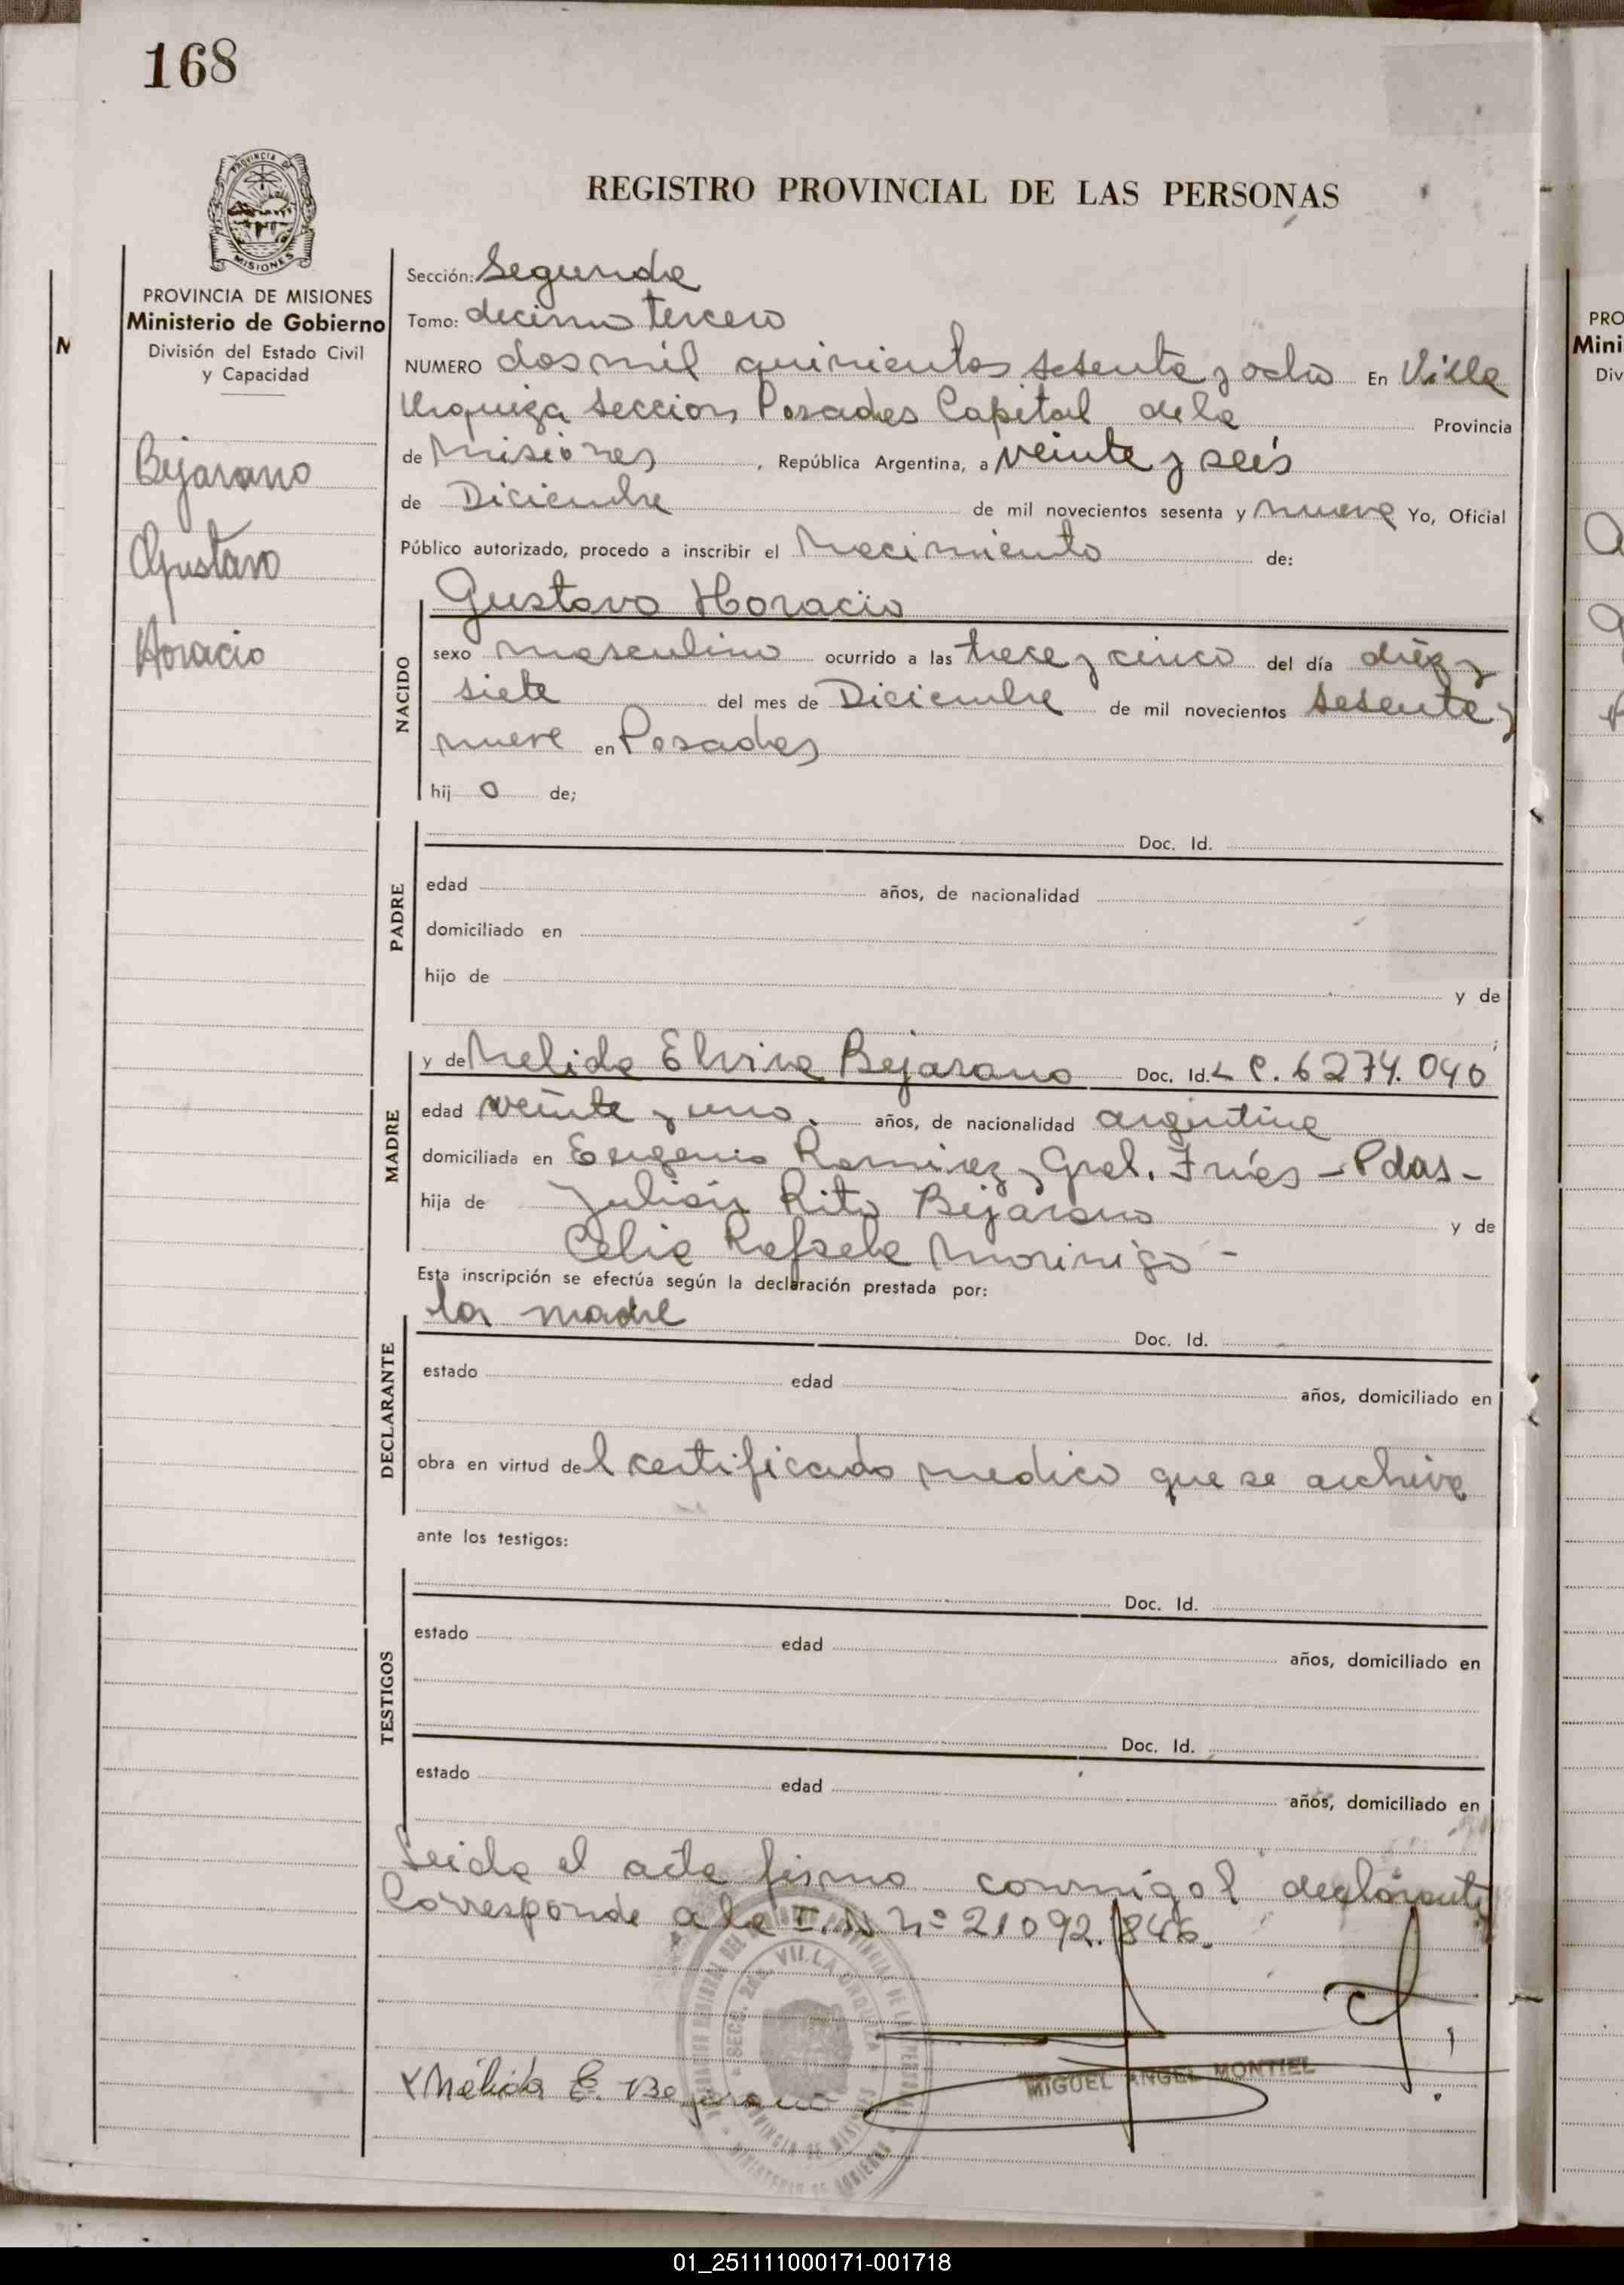 168
PROVINCIA DE
MISIONES
PROVINCIA DE MISIONES
Ministerio de Gobierno
División del Estado Civil
y Capacidad
Bejarano
Gustavo
Horacio
REGISTRO PROVINCIAL DE LAS PERSONAS
Sección: Segunda
Tomo: decimo tercero
NUMERO dos mil quinientos sesenta y ocho En Villa
Urquiza Seccion Posadas Capital de la Provincia
de Misiones, República Argentina, a veinte y seis
de Diciembre de mil novecientos sesenta y nueve Yo, Oficial
Público autorizado, procedo a inscribir el Nacimiento de:
NACIDO
Gustavo Horacio
sexo masculino ocurrido a las trece y cinco del día diez y
siete del mes de Diciembre de mil novecientos sesenta y
nueve en Posadas
hij o de;
PADRE
Doc. Id.
edad años, de nacionalidad
domiciliado en
hijo de y de
;
MADRE
y de Nelida Elvira Bejarano Doc. Id. L C. 6274.040
edad veinte y uno. años, de nacionalidad argentina
domiciliada en Eugenio Ramirez y Gral. Frías - Pdas -
hija de Julián Rito Bejarano y de
Celia Rafaela Morinigo -
Esta inscripción se efectúa según la declaración prestada por:
DECLARANTE
la madre Doc. Id.
estado edad años, domiciliado en
obra en virtud del certificado medico que se archiva
ante los testigos:
TESTIGOS
Doc. Id.
estado edad años, domiciliado en
Doc. Id.
estado edad años, domiciliado en
Leida el acta firma conmigo l declarante
Corresponde a la I. N nº 21092.846.
SECC. 2da. VILLA URQUIZA
PROVINCIA DE MISIONES
MINISTERIO DE GOBIERNO
Nélida E. Bejarano
MIGUEL ANGEL MONTIEL
PRO
Mini
Div
01_251111000171-001718